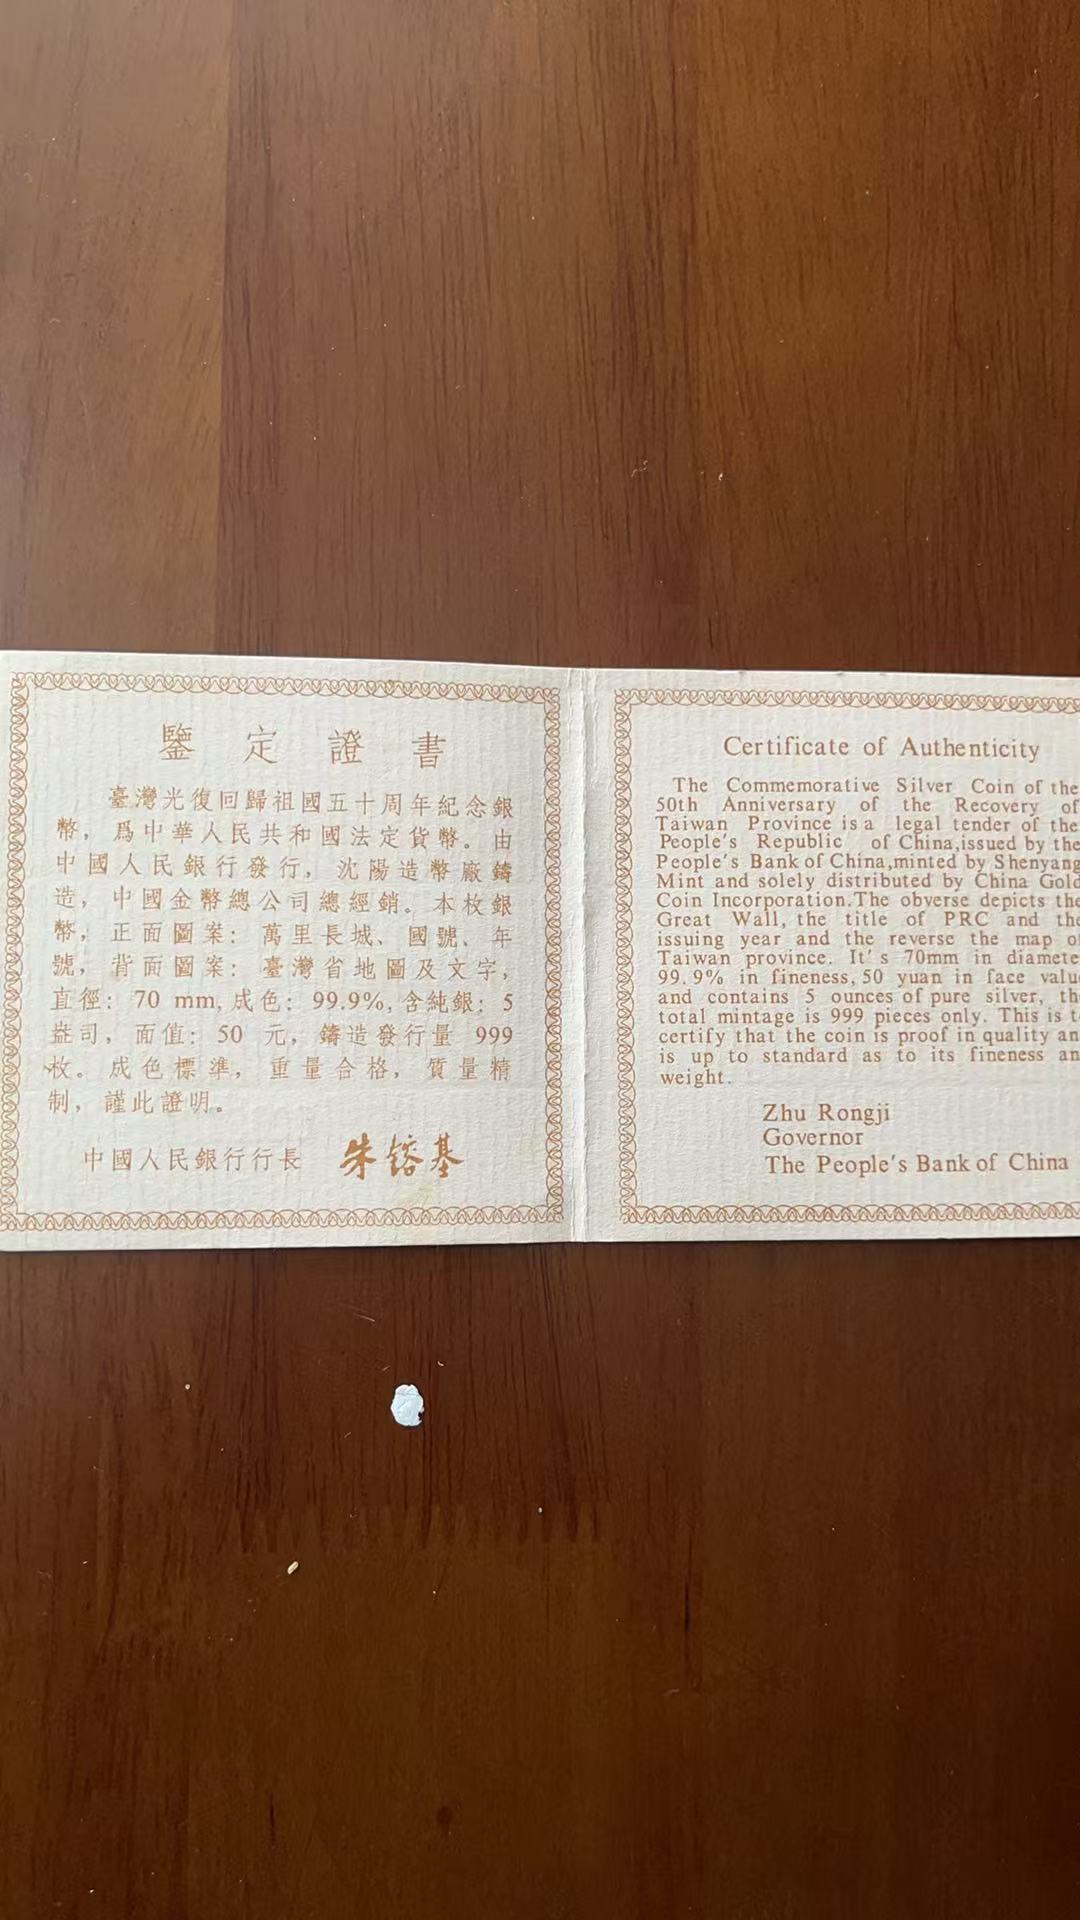 鑒定證書
臺灣光復回歸祖國五十周年紀念銀
幣，爲中華人民共和國法定貨幣。由
中國人民銀行發行，沈陽造幣廠鑄
造，中國金幣總公司總經銷。本枚銀
幣，正面圖案：萬里長城、國號、年
號，背面圖案：臺灣省地圖及文字，
直徑：70 mm，成色：99.9%，含純銀：5
盎司，面值：50 元，鑄造發行量 999
枚。成色標準，重量合格，質量精
制，謹此證明。
中國人民銀行行長 朱镕基
Certificate of Authenticity
The Commemorative Silver Coin of the
50th Anniversary of the Recovery of
Taiwan Province is a legal tender of the
People's Republic of China,issued by the
People's Bank of China,minted by Shenyang
Mint and solely distributed by China Gold
Coin Incorporation.The obverse depicts the
Great Wall, the title of PRC and the
issuing year and the reverse the map o
Taiwan province. It's 70mm in diamete
99.9% in fineness, 50 yuan in face valu
and contains 5 ounces of pure silver, th
total mintage is 999 pieces only. This is t
certify that the coin is proof in quality an
is up to standard as to its fineness an
weight.
Zhu Rongji
Governor
The People's Bank of China